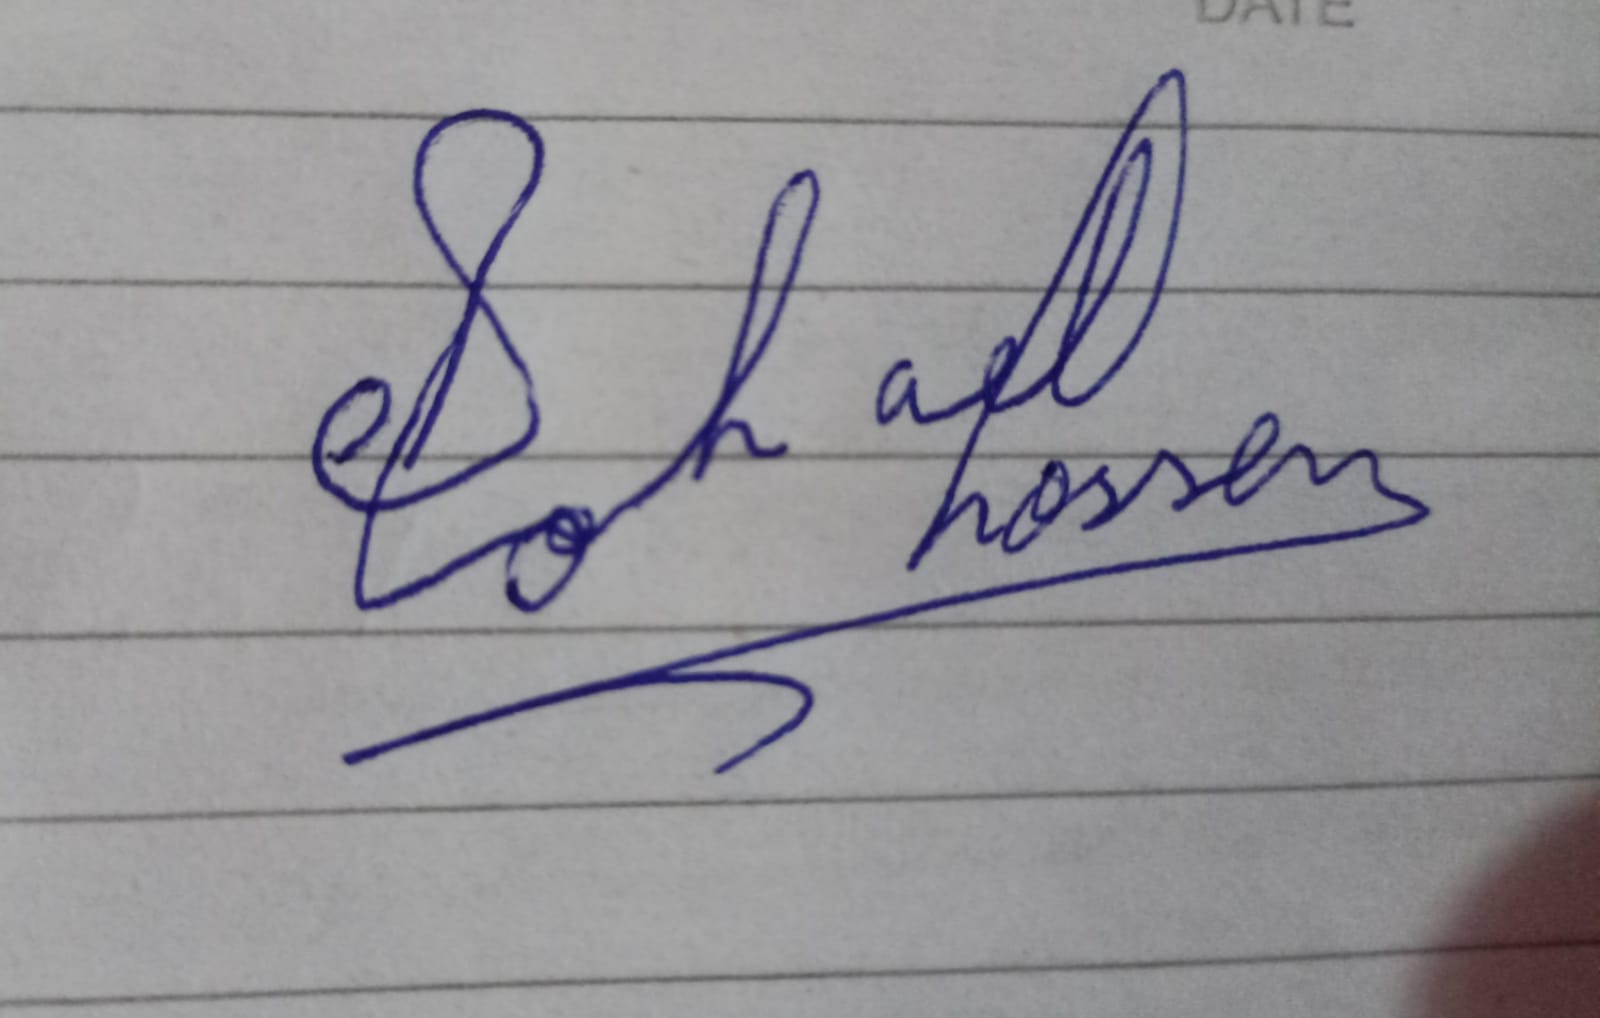 DATE
Sohad
hossen